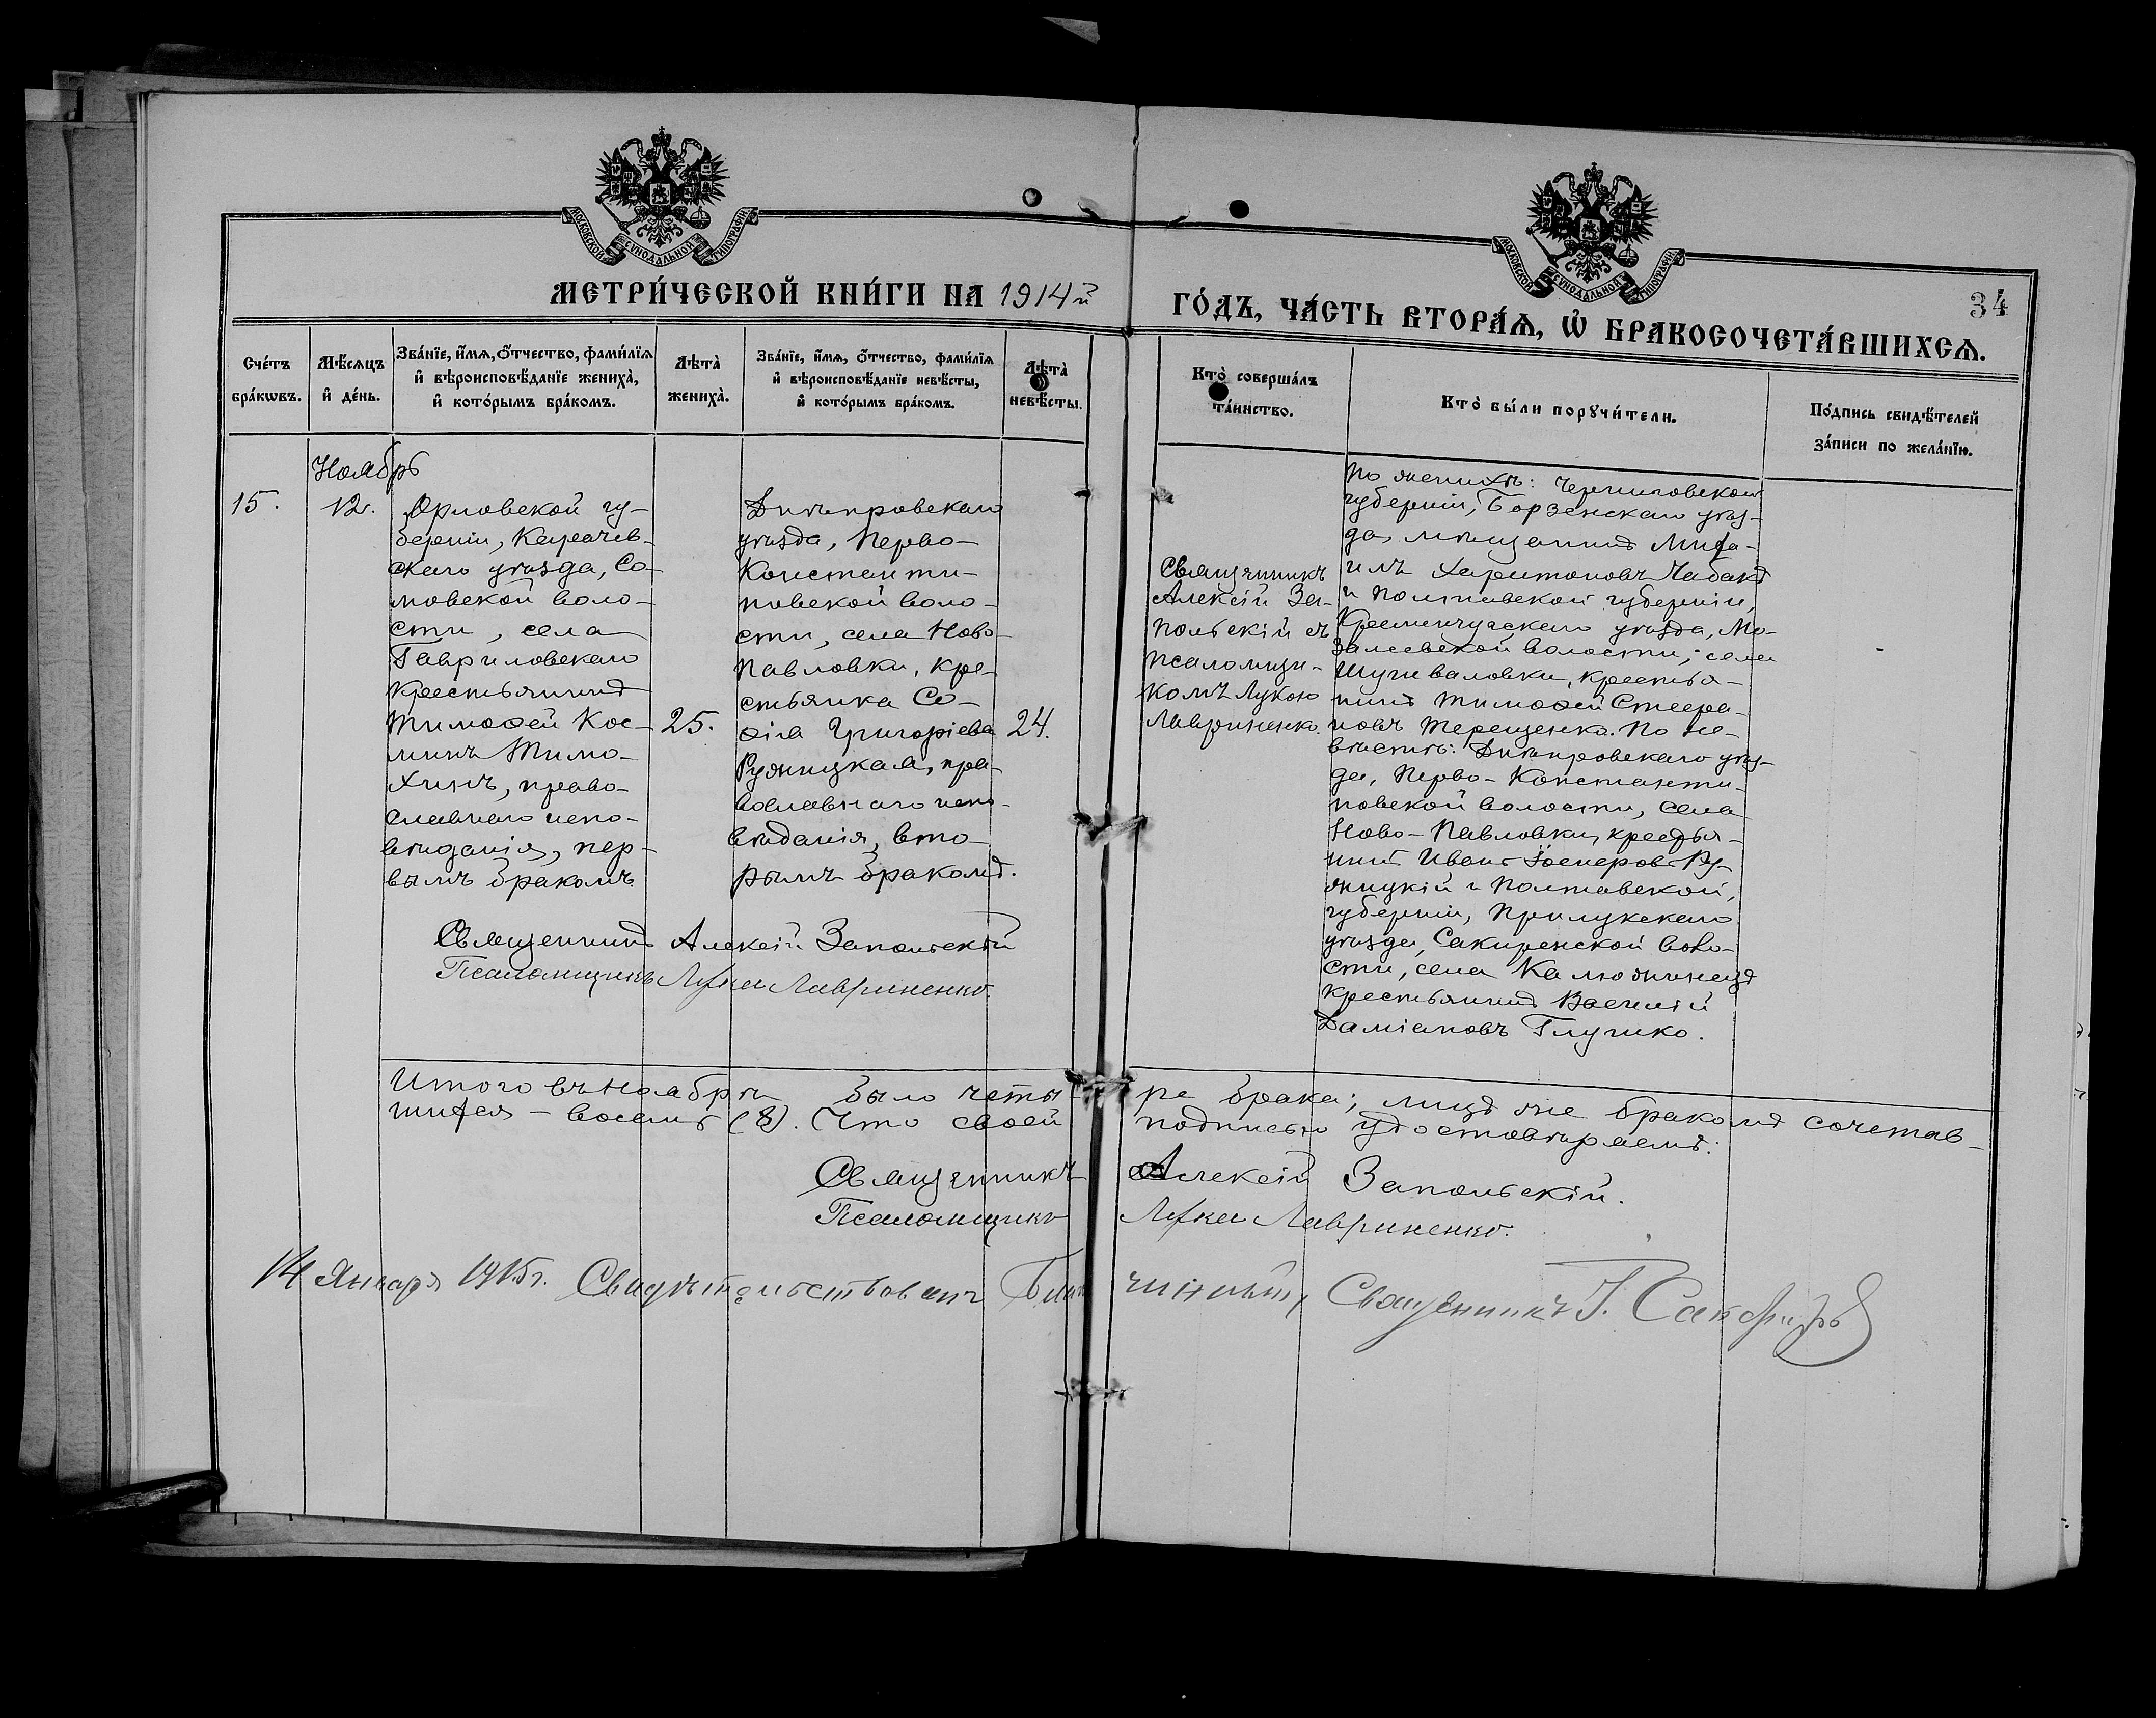 МОСКОВСКОЙ СѴНОДАЛЬНОЙ ТИПОГРАФІИ
МОСКОВСКОЙ СѴНОДАЛЬНОЙ ТИПОГРАФІИ
34
МЕТРИ́ЧЕСКОЙ КНИ́ГИ НА 1914й
ГО́ДЪ, ЧА́СТЬ ВТОРА́Ѧ, Ѡ҆ БРАКОСОЧЕТА́ВШИХСѦ.
Сче́тъ
бра́кѡвъ.
Мѣ́сяцъ
и҆ де́нь.
Зва́нїе, и҆́мѧ, ѻ҆́тчество, фами́лїѧ
и҆ вѣроисповѣ́данїе жениха̀,
и҆ кото́рымъ бра́комъ.
Лѣ́та̀
жениха̀.
Зва́нїе, и҆́мѧ, ѻ҆́тчество, фами́лїѧ
и҆ вѣроисповѣ́данїе невѣ́сты,
и҆ кото́рымъ бра́комъ.
Лѣ́та̀
невѣ́сты.
Кто̀ соверша́лъ
та́инство.
Кто̀ бы́ли порꙋчи́тели.
По́дпись свидѣ́телей
за́писи по жела́нїю.
Ноябрь
15.
12.
Орловской гу-
берніи, Карачев-
скаго уѣзда, Со-
мовской воло-
сти, села
Гавриловскаго
крестьянинъ
Тимоѳей Кос-
минъ Тимо-
хинъ, право-
славнаго испо-
вѣданія, пер-
вымъ бракомъ
25.
Днѣпровскаго
уѣзда, Перво-
Константи-
новской воло-
сти, села Ново-
Павловки, кре-
стьянка Со-
ѳія Григоріева
Ружицкая, пра-
вославнаго испо-
вѣданія, вто-
рымъ бракомъ.
24.
Священникъ
Алексій За-
польскій съ
псаломщи-
комъ Лукою
Лавриненко.
По женихѣ: Черниговской
губерніи, Борзенскаго уѣз-
да, мѣщанинъ Миха-
илъ Харитоновъ Чабакъ
и Полтавской губерніи,
Кременчугскаго уѣзда, Мо-
залѣевской волости, села
Шушваловки, крестья-
нинъ Тимоѳей Стефа-
новъ Терещенко. По не-
вѣстѣ: Днѣпровскаго уѣз-
да, Перво-Константи-
новской волости, села
Ново-Павловки, крестья-
нинъ Иванъ Ру-
жицкій и Полтавской,
губерніи, Прилукскаго
уѣзда, воло-
сти, села Калюжинецъ
крестьянинъ Василій
Даміановъ Глушко.
Священникъ Алексій Запольскій
Псаломщикъ Лука Лавриненко.
Итого въ ноябрѣ было четы-
ре брака; лицъ же бракомъ сочетав-
шихся - восемь (8). Что своей
подписью удостовѣряемъ:
Священникъ Алексій Запольскій.
Псаломщикъ Лука Лавриненко.
14 Января 1915г. Свидѣтельствовалъ
Священникъ